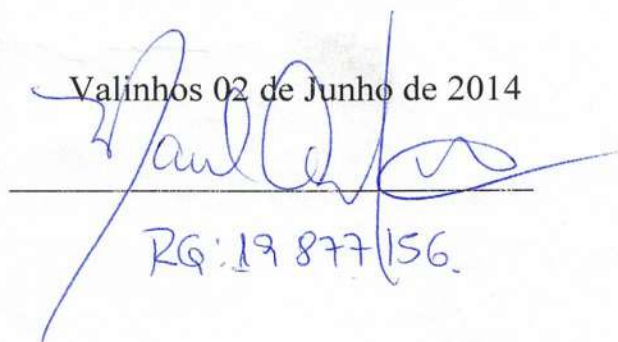 Valinhos 02 de Junho de 2014
RG: 19 877 156.